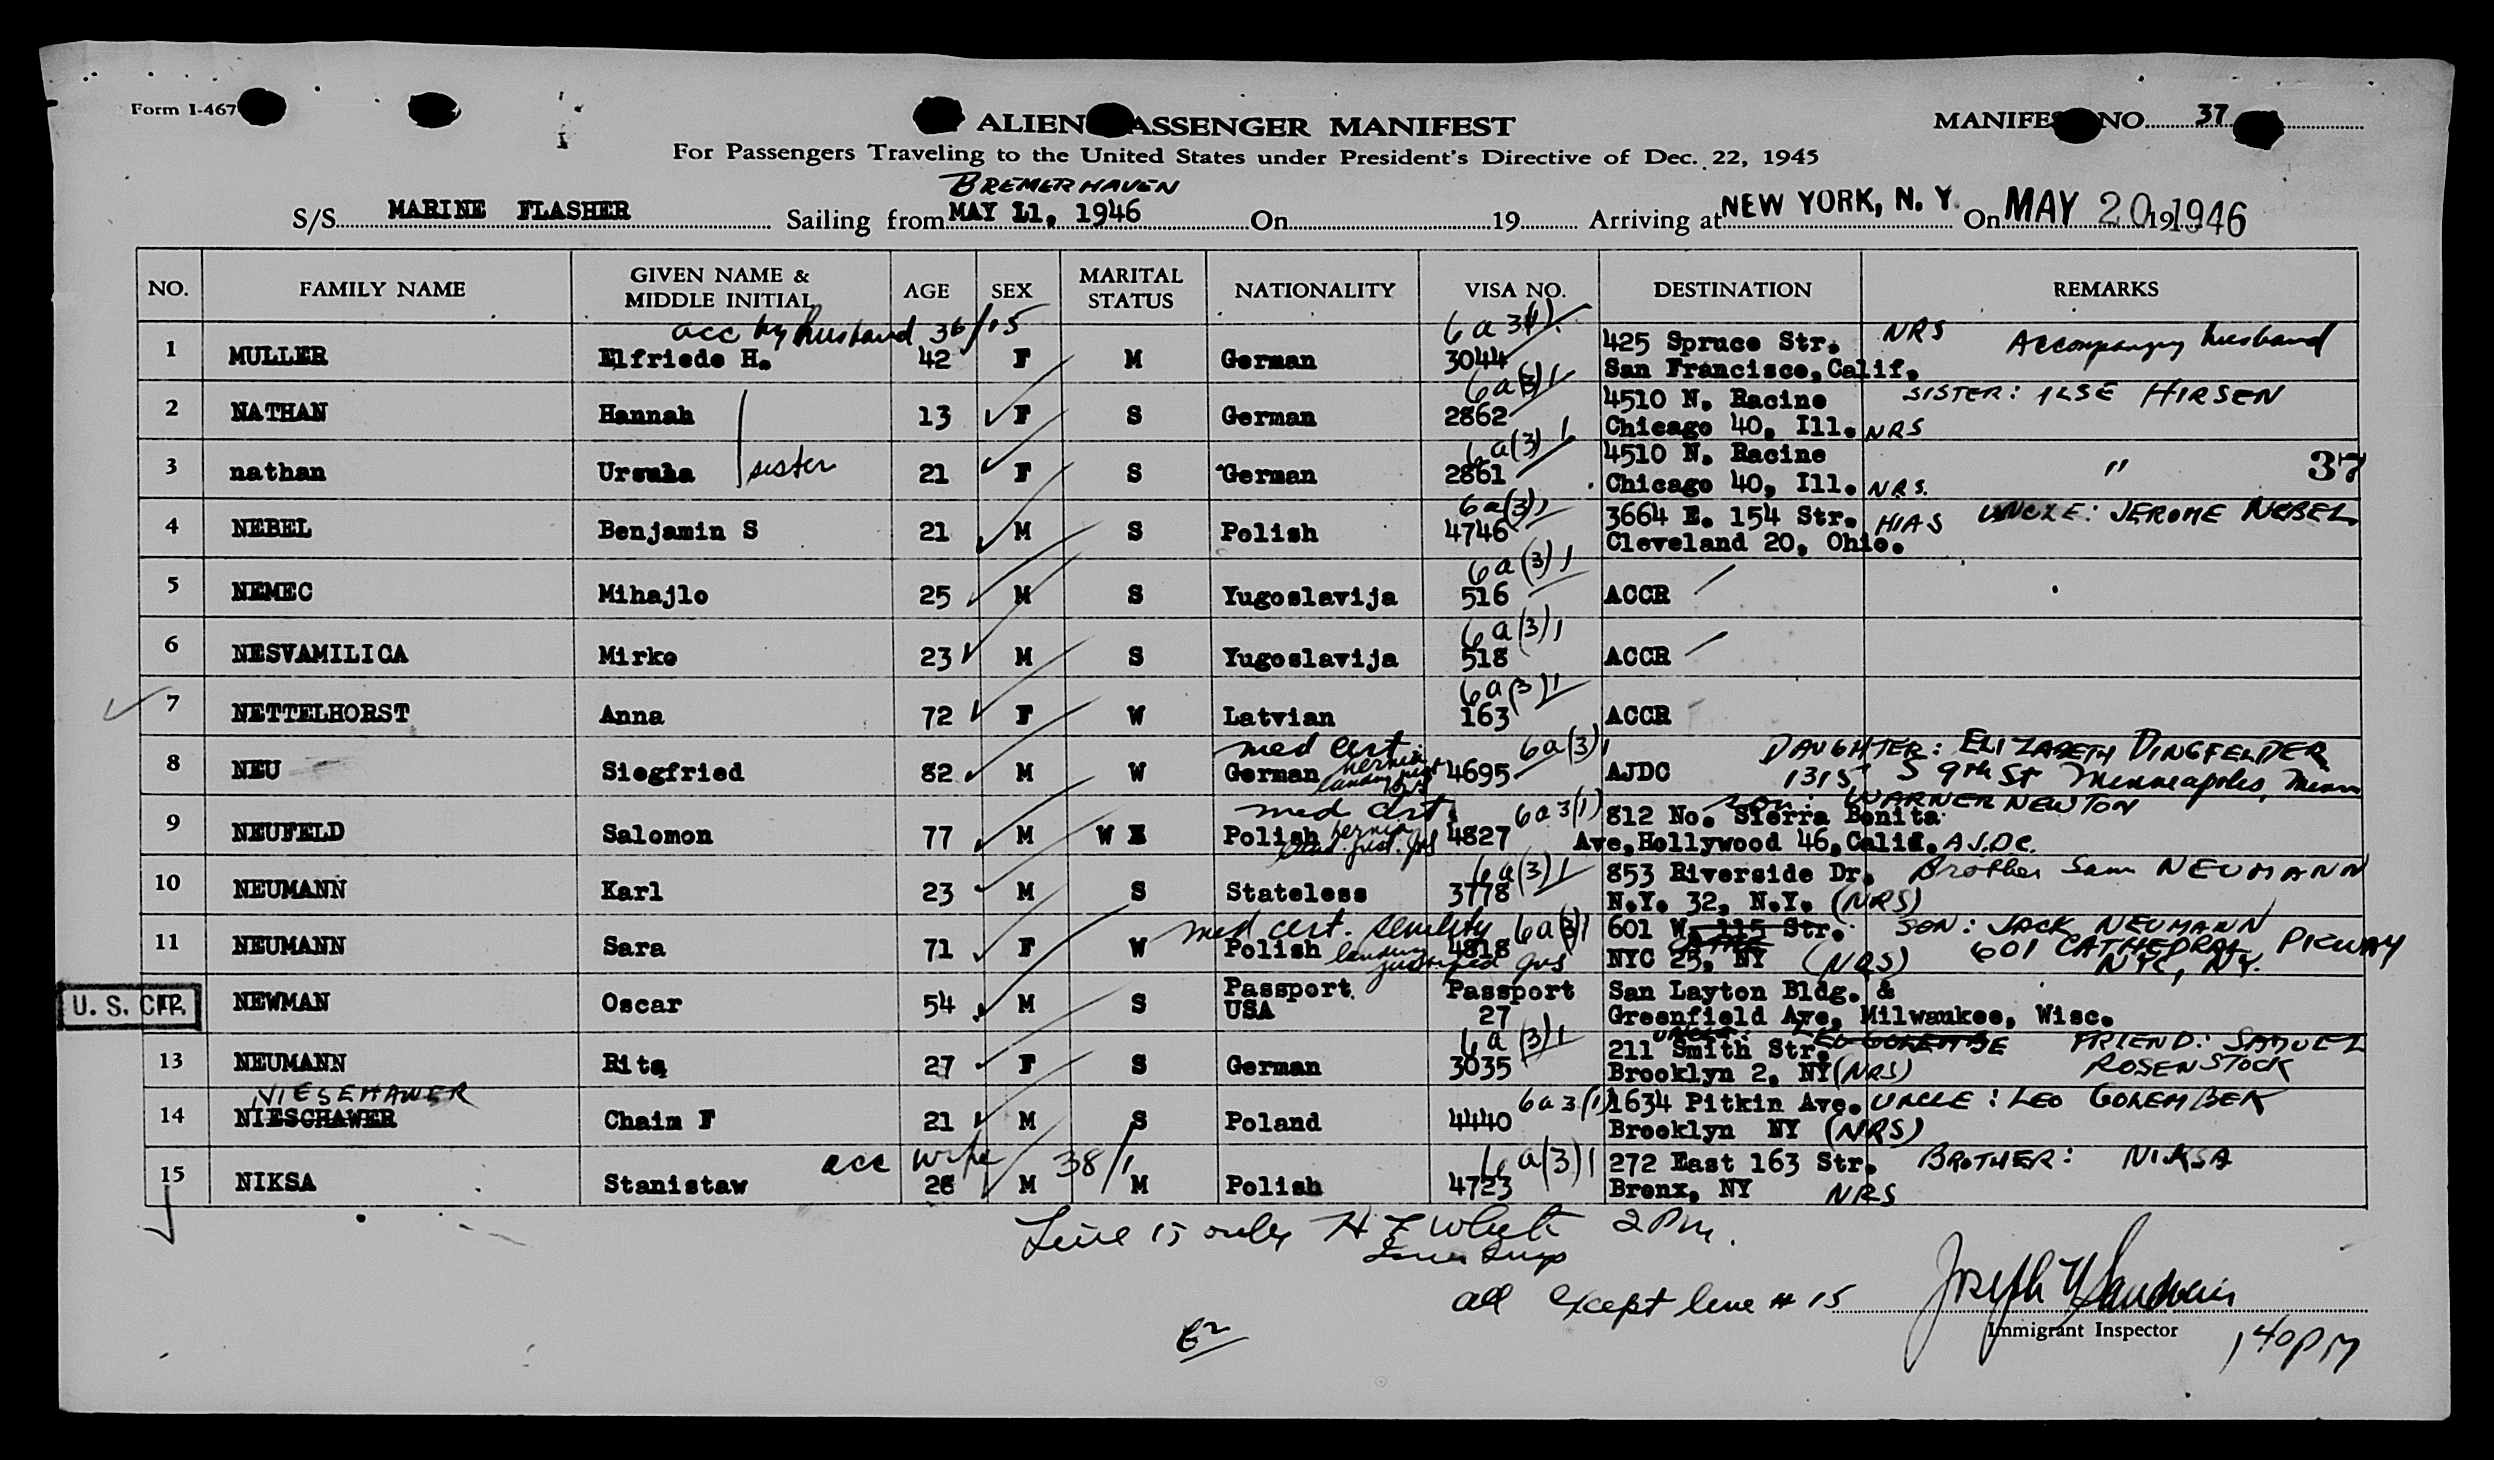 Form I-467
ALIEN ASSENGER MANIFEST
MANIFES NO. 37
For Passengers Traveling to the United States under President's Directive of Dec. 22, 1945
BREMERHAVEN
S/S MARINE FLASHER Sailing from MAY 11, 1946 On 19 Arriving at NEW YORK, N. Y. On MAY 20 19 1946
NO. FAMILY NAME GIVEN NAME & MIDDLE INITIAL AGE SEX MARITAL STATUS NATIONALITY VISA NO. DESTINATION REMARKS
acc by husband 36/15 6a3(1)
1 MULLER Elfriede H. 42 F M German 3044 425 Spruce Str. NRS Accompanying husband
San Francisco, Calif.
6a(3)1
2 NATHAN Hannah 13 F S German 2862 4510 N. Racine SISTER: ILSE HIRSEN
Chicago 40, Ill. NRS
6a(3)1
3 nathan Ursula sister 21 F S German 2861 4510 N. Racine " 37
Chicago 40, Ill. NRS.
6a(3)1
4 NEBEL Benjamin S 21 M S Polish 4746 3664 E. 154 Str. HIAS UNCLE: JEROME NEBEL
Cleveland 20, Ohio.
6a(3)1
5 NEMEC Mihajlo 25 M S Yugoslavija 516 ACCR
6a(3)1
6 NESVAMILICA Mirko 23 M S Yugoslavija 518 ACCR
6a(3)1
7 NETTELHORST Anna 72 F W Latvian 163 ACCR
med cert. 6a(3)1 DAUGHTER: ELIZABETH DINGFELDER
8 NEU Siegfried 82 M W German hernia 4695 AJDC 1315 S 9th St Minneapolis, Minn
med cert. 6a3(1) son: WARNER NEWTON
9 NEUFELD Salomon 77 M W Polish hernia 4827 812 No. Sierra Bonita
Ave, Hollywood 46, Calif. AJDC.
6a(3)1
10 NEUMANN Karl 23 M S Stateless 3778 853 Riverside Dr. Brother Sam NEUMANN
N.Y. 32, N.Y. (NRS)
med cert. senility 6a(3)1
11 NEUMANN Sara 71 F W Polish landing justified 4818 601 W. 115 Str. SON: JACK NEUMANN
NYC 25, NY (NRS) 601 CATHEDRAL PKWAY
NYC, NY.
U. S. CIT. 12 NEWMAN Oscar 54 M S Passport USA Passport 27 San Layton Bldg. &
Greenfield Ave, Milwaukee, Wisc.
6a(3)1
13 NEUMANN Rita 27 F S German 3035 211 Smith Str. FRIEND: SAMUEL
Brooklyn 2, NY (NRS) ROSENSTOCK
NIESEHAWER
14 NIESCHAWER Chaim F 21 M S Poland 4440 6a3(1) 1634 Pitkin Ave. UNCLE: LEO GOREMBEK
Brooklyn NY (NRS)
acc wife 38/1 6a(3)1
15 NIKSA Stanistaw 26 M M Polish 4723 272 East 163 Str. BROTHER: NIKSA
Bronx, NY NRS
Line 15 only 2 Pm.
all except line # 15
Immigrant Inspector
1 40 PM